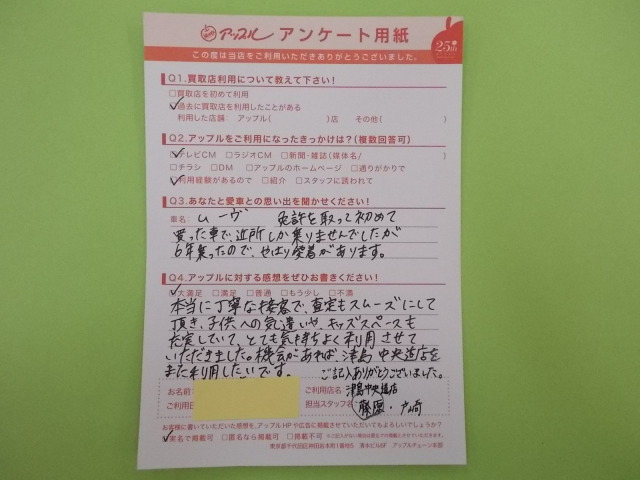 アップル アンケート用紙
25th
この度は当店をご利用いただきありがとうございました。
Q1.買取店利用について教えて下さい!
□買取店を初めて利用
☑過去に買取店を利用したことがある
利用した店舗: アップル( )店 その他( )
Q2.アップルをご利用になったきっかけは?(複数回答可)
☑テレビCM □ラジオCM □新聞・雑誌(媒体名/ )
□チラシ □DM □アップルのホームページ □通りがかりで
☑利用経験があるので □紹介 □スタッフに誘われて
Q3.あなたと愛車との思い出を聞かせください!
車名: ムーヴ 免許を取って初めて
買った車で、近所しか乗りませんでしたが
6年乗ったので、やはり愛着があります。
Q4.アップルに対する感想をぜひお書きください!
☑大満足 □満足 □普通 □もう少し □不満
本当に丁寧な接客で、査定もスムーズにして
頂き、子供への気遣いや、キッズスペースも
充実していて、とても気持ちよく利用させて
いただきました。機会があれば、津島中央道店を
また利用したいです。 ご記入ありがとうございました。
お名前: ご利用店名: 津島中央道店
ご利用日 担当スタッフ名: 藤原・戸崎
お客様に書いていただいた感想を、アップルHPや広告に掲載させていただいてもよろしいでしょうか?
☑実名で掲載可 □匿名なら掲載可 □掲載不可
東京都千代田区神田岩本町1番地5 清水ビル6F アップルチェーン本部